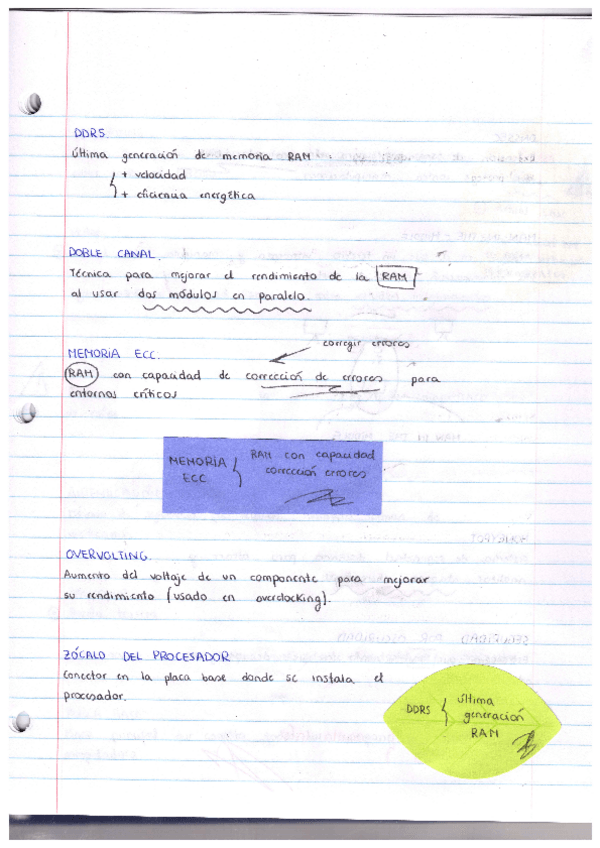 DDR5.
Última generación de memoria RAM:
+ velocidad
+ eficiencia energética
DOBLE CANAL.
Técnica para mejorar el rendimiento de la RAM
al usar dos módulos en paralelo.
MEMORIA ECC.
corregir errores
RAM con capacidad de corrección de errores para
entornos críticos
MEMORIA ECC { RAM con capacidad
corrección errores
OVERVOLTING.
Aumento del voltaje de un componente para mejorar
su rendimiento (usado en overclocking).
ZÓCALO DEL PROCESADOR
Conector en la placa base donde se instala el
procesador.
DDR5 { última
generación
RAM